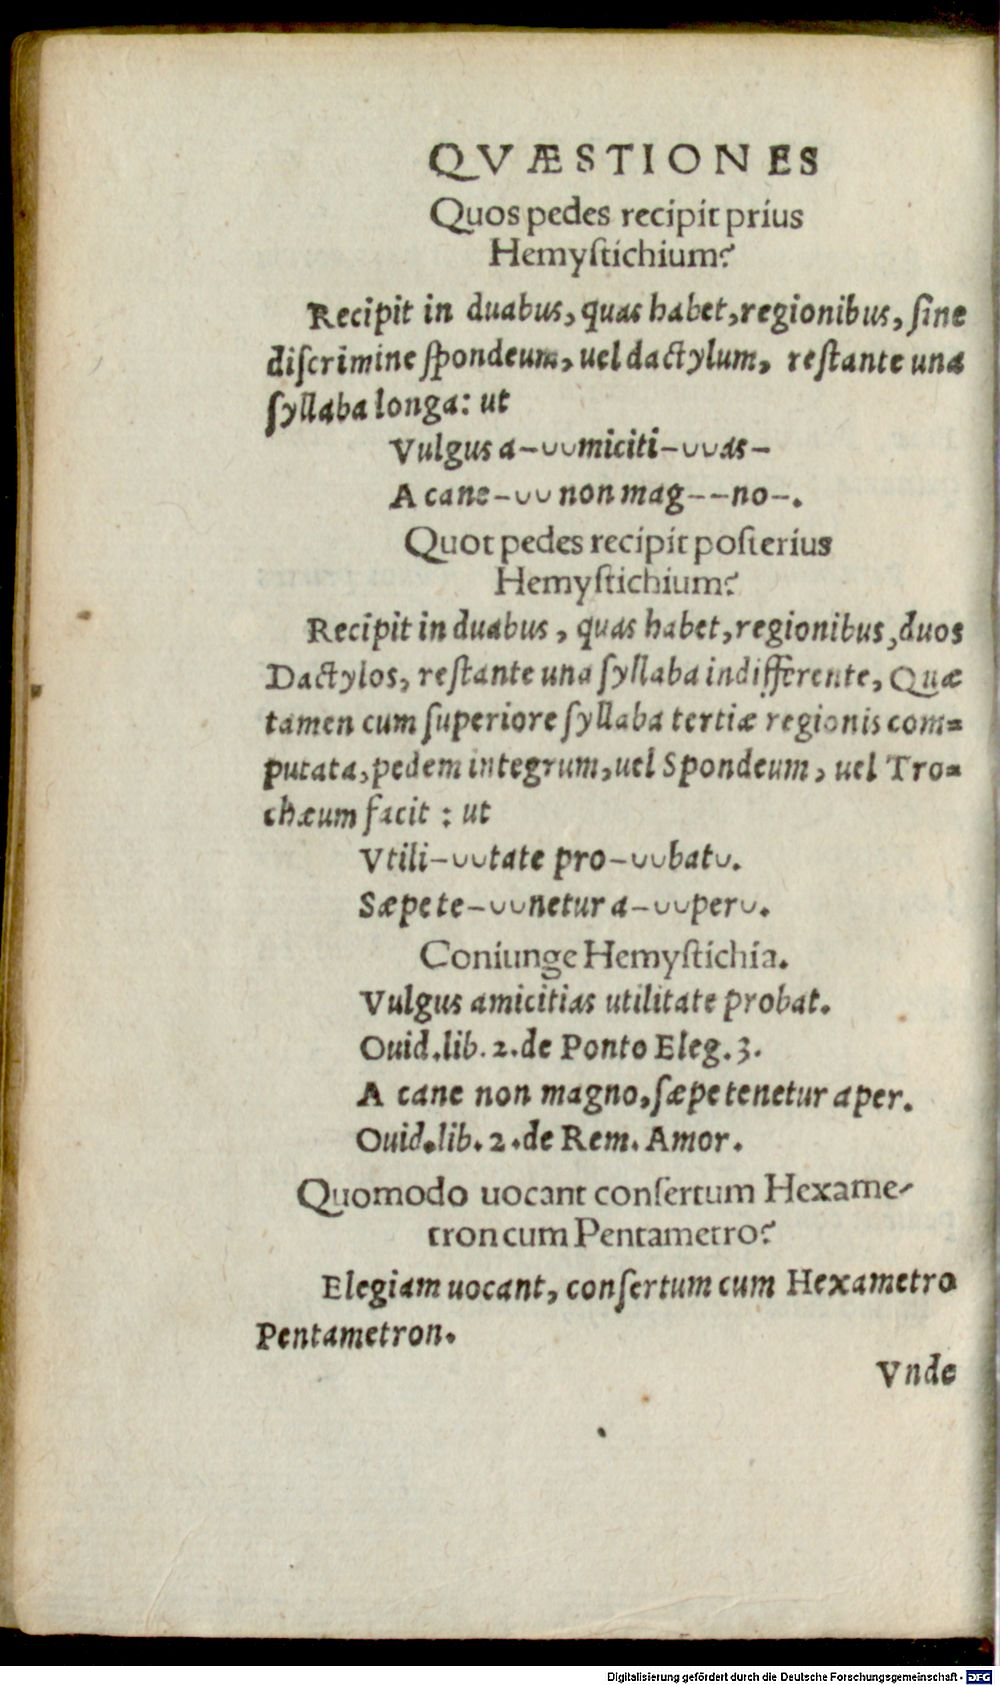 QVÆSTIONES
Quos pedes recipit prius
Hemyſtichium?
Recipit in duabus, quas habet, regionibus, ſine
diſcrimine ſpondeum, uel dactylum, reſtante una
ſyllaba longa: ut
Vulgus a–∪∪miciti–∪∪as–
A cane–∪∪ non mag––no–.
Quot pedes recipit poſterius
Hemyſtichium?
Recipit in duabus, quas habet, regionibus, duos
Dactylos, reſtante una ſyllaba indifferente, Quæ
tamen cum ſuperiore ſyllaba tertiæ regionis com=
putata, pedem integrum, uel Spondeum, uel Tro=
chæum facit : ut
Vtili–∪∪tate pro–∪∪bat∪.
Sæpe te–∪∪netur a–∪∪per∪.
Coniunge Hemyſtichia.
Vulgus amicitias utilitate probat.
Ouid.lib. 2.de Ponto Eleg. 3.
A cane non magno, ſæpe tenetur aper.
Ouid.lib. 2.de Rem. Amor.
Quomodo uocant conſertum Hexame-
tron cum Pentametro?
Elegiam uocant, conſertum cum Hexametro
Pentametron.
Vnde
Digitalisierung gefördert durch die Deutsche Forschungsgemeinschaft - DFG